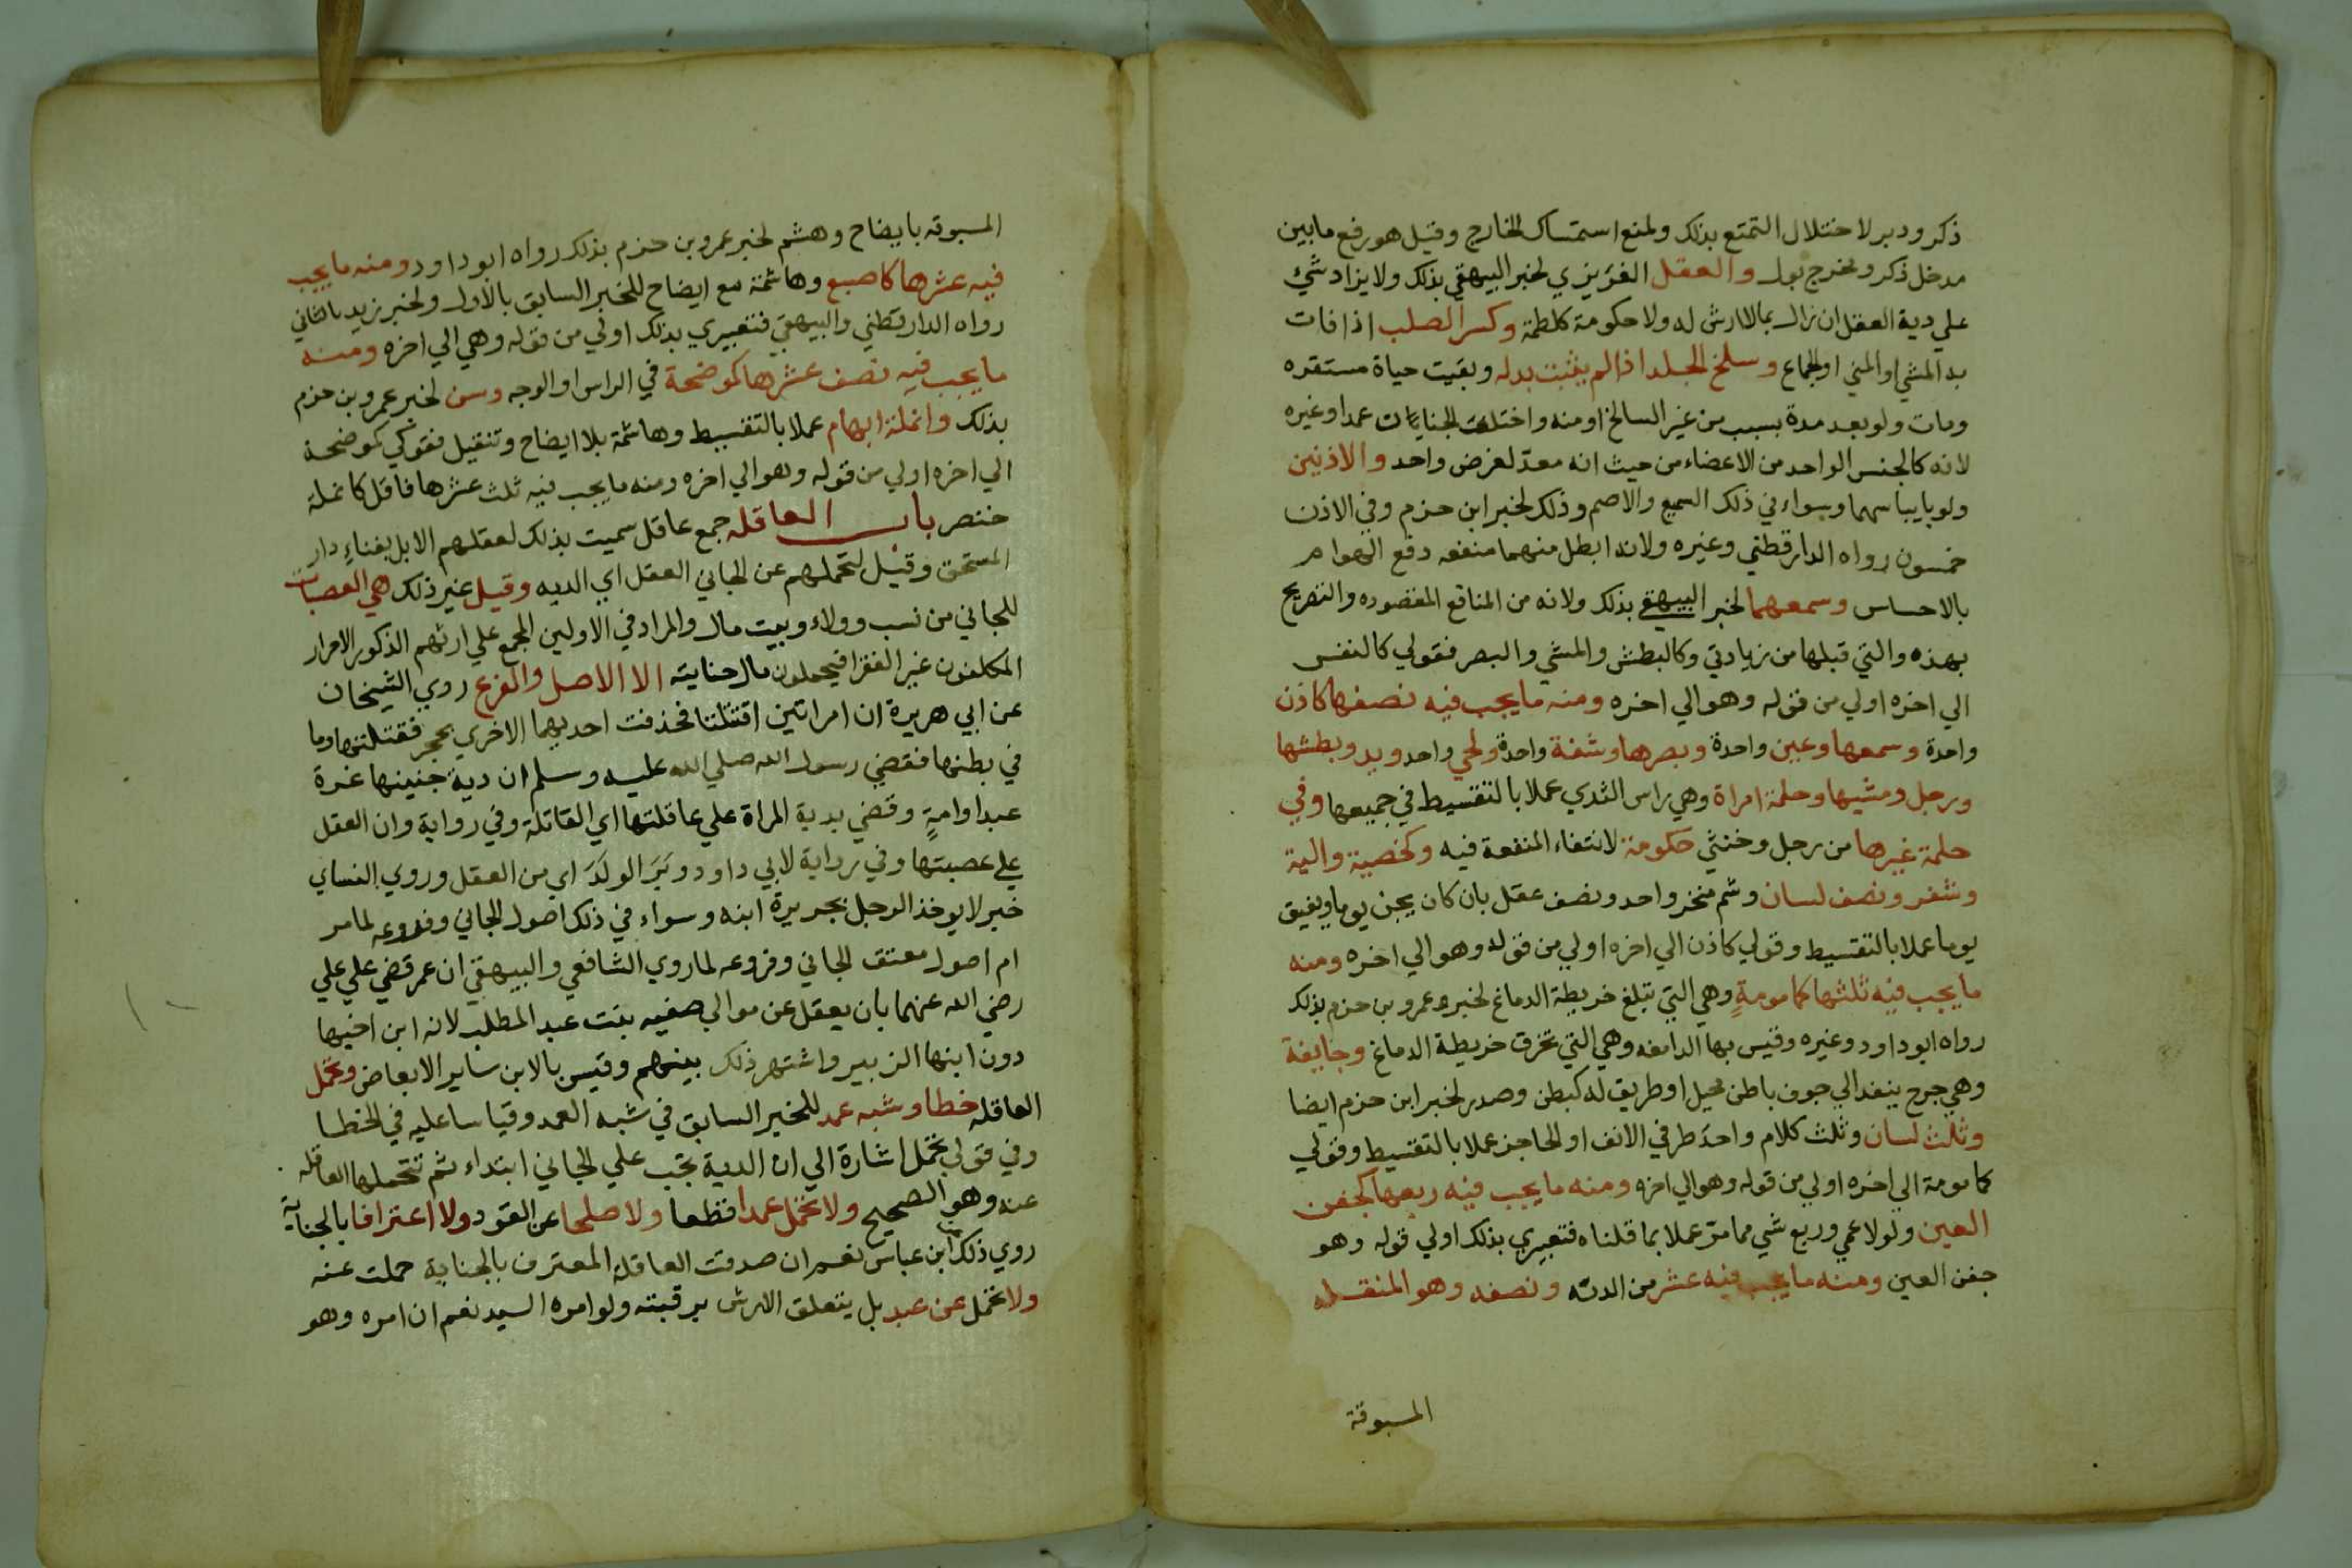 ذكر ودبر لاختلال التمتع بذلك ولمنع استمساك الخارج وقيل هو رفع ما بين
مدخل ذكر ومخرج بول والعقل الغريزي لخبر البيهقي بذلك ولا يزاد شيء
علي دية العقل ان زال بما لا ارش له ولا حكومة كلطمة وكسر الصلب اذا فات
به المشي او المني او الجماع وسلخ الجلد اذا لم ينبت بدله وبقيت حياة مستقره
ومات ولو بعد مدة بسبب من غير السالخ او منه واختلفت الجنايتان عمدا وغيره
لانه كالجنس الواحد من الاعضاء من حيث انه معدّ لغرض واحد والاذنين
ولو بايباسهما وسواء في ذلك السميع والاصم وذلك لخبر ابن حزم وفي الاذن
خمسون رواه الدارقطني وغيره ولانه ابطل منهما منفعه دفع الهوام
بالاحساس وسمعهما لخبر البيهقي بذلك ولانه من المنافع المقصوده والتصريح
بهذه والتي قبلها من زيادتي وكالبطش والمشي والبصر فقولي كالنفس
الي اخره اولي من قوله وهو الي اخره ومنه ما يجب فيه نصفها كاذن
واحدة وسمعها وعين واحدة وبصرها وشفة واحدة ولحي واحد ويد وبطشها
ورجل ومشيها وحلمة امراة وهي راس الثدي عملا بالتقسيط في جميعها وفي
حلمة غيرها من رجل وخنثي حكومة لانتفاء المنفعة فيه وكخصية والية
وشفر ونصف لسان وشم منخر واحد ونصف عقل بان كان يجن يوما ويفيق
يوما عملا بالتقسيط وقولي كاذن الي اخره اولي من قوله وهو الي اخره ومنه
ما يجب فيه ثلثها كمامومةٍ وهي التي تبلغ خريطة الدماغ لخبر عمرو بن حزم بذلك
رواه ابو داود وغيره وقيس بها الدامغه وهي التي تخرق خريطة الدماغ وجايفة
وهي جرح ينفد الي جوف باطن محيل او طريق له كبطن وصدر لخبر ابن حزم ايضا
وثلث لسان وثلث كلام واحد طرفي الانف او الحاجز عملا بالتقسيط وقولي
كمامومة الي اخره اولي من قوله وهو الي اخره ومنه ما يجب فيه ربعها كجفن
العين ولو لاعمي وربع شي مما مرّ عملا بما قلناه فتعبيري بذلك اولي قوله وهو
جفن العين ومنه ما يجب فيه عشر من الديه ونصفه وهو المنقله
المسبوقة
المسبوقه بايضاح وهشم لخبر عمرو بن حزم بذلك رواه ابو داود ومنه ما يجب
فيه عشرها كاصبع وهاشمة مع ايضاح للخبر السابق بالاول ولخبر زيد بالثاني
رواه الدارقطني والبيهقي فتعبيري بذلك اولي من قوله وهي الي اخره ومنه
ما يجب فيه نصف عشرها كموضحة في الراس او الوجه وسن لخبر عمرو بن حزم
بذلك وانملة ابهام عملا بالتقسيط وهاشمة بلا ايضاح وتنقيل فقولي كموضحة
الي اخره اولي من قوله وهو الي اخره ومنه ما يجب فيه ثلث عشرها فاقل كانملة
خنصر باب العاقله جمع عاقل سميت بذلك لعقلهم الابل بفناءِ دار
المستحق وقيل لتحملهم عن الجاني العقل اي الديه وقيل غير ذلك هي العصبات
للجاني من نسب وولاء وبيت مال والمراد في الاولين المجمع علي ارثهم الذكور الاحرار
المكلفون غير الفقرا فيحملون مال جنايته الا الاصل والفرع روي الشيخان
عن ابي هريرة ان امراتين اقتتلتا فخذفت احديهما الاخري بحجر فقتلتها وما
في بطنها فقضي رسول الله صلي الله عليه وسلم ان دية جنينها غرة
عبد او امةٍ وقضي بدية المراة علي عاقلتها اي القاتلة وفي رواية وان العقل
علي عصبتها وفي رواية لابي داود وبَرَ الولدَ اي من العقل وروي النساي
خبر لا يوخذ الرجل بجريرة ابنه وسواء في ذلك اصول الجاني وفروعه لما مر
ام اصول معتق الجاني وفروعه لما روي الشافعي والبيهقي ان عمر قضي علي علي
رضي الله عنهما بان يعقل عن موالي صفيه بنت عبد المطلب لانه ابن اخيها
دون ابنها الزبير واشتهر ذلك بينهم وقيس بالابن ساير الابعاض وتحمل
العاقله خطا وشبه عمد للخبر السابق في شبه العمد وقياسا عليه في الخطا
وفي قولي تحمل اشارة الي ان الدية تجب علي الجاني ابتداء ثم تتحملها العاقله
عنه وهو الصحيح ولا تحمل عمدا قطعا ولا صلحا عن القود ولا اعترافا بالجناية
روي ذلك ابن عباس نعم ان صدقت العاقلة المعترف بالجناية حملت عنه
ولا تحمل عن عبد بل يتعلق الارش برقبته ولو امره السيد نعم ان امره وهو